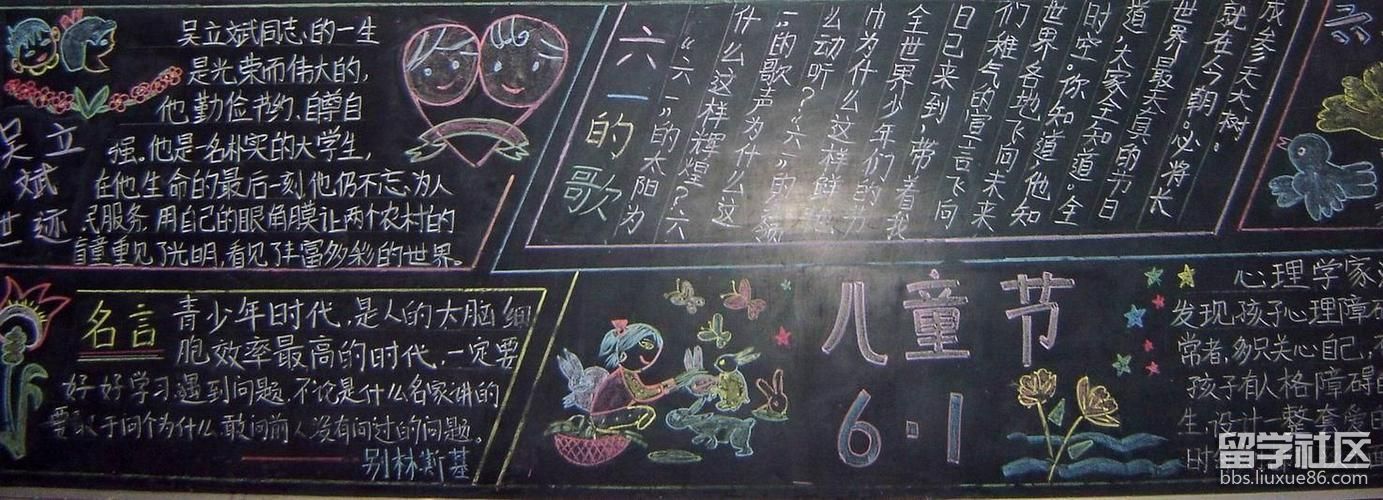 吴立斌同志的一生
是光荣而伟大的,
他勤俭节约、自尊自
强。他是一名朴实的大学生,
在他生命的最后一刻他仍不忘为人
民服务.用自己的眼角膜让两个农村的
盲童重见了光明,看见了丰富多彩的世界。
吴立
斌
世迹
名言
青少年时代,是人的大脑细
胞效率最高的时代,一定要
好好学习.遇到问题.不论是什么名家讲的
要敢于问个为什么.敢问前人没有问过的问题。
别林斯基
六一的歌
“六一”的太阳为
什么这样辉煌?六
一”的歌声为什么这
么动听?“六一”的
巾为什么这样鲜
全世界少年们的
日已来到,带着我
们稚气的宣言飞向
世界各地飞向未来
时空。你知道,他知
道,大家全知道。全
世界最天真的节日
就在今朝。必将长
成参天大树.
儿童节
6·1
心理学家
发现,孩子心理障碍
常者,多只关心自己,
孩子有人格障碍的
生,设计一整套爱的
时
留学社区
bbs.liuxue86.com